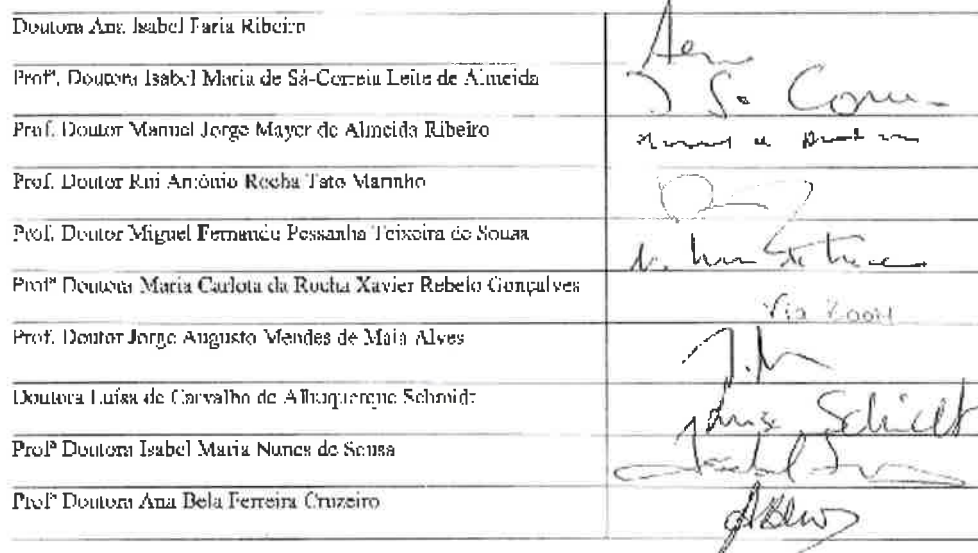 Doutora Ana Isabel Faria Ribeiro
Profª. Doutora Isabel Maria de Sá-Correia Leite de Almeida
J Sá Correia
Prof. Doutor Manuel Jorge Mayer de Almeida Ribeiro
Prof. Doutor Rui António Rocha Tato Marinho
Prof. Doutor Miguel Fernando Pessanha Teixeira de Sousa
Profª Doutora Maria Carlota da Rocha Xavier Rebelo Gonçalves
Via ZOOM
Prof. Doutor Jorge Augusto Mendes de Maia Alves
Doutora Luísa de Carvalho de Albuquerque Schmidt
Luísa Schmidt
Profª Doutora Isabel Maria Nunes de Sousa
Profª Doutora Ana Bela Ferreira Cruzeiro